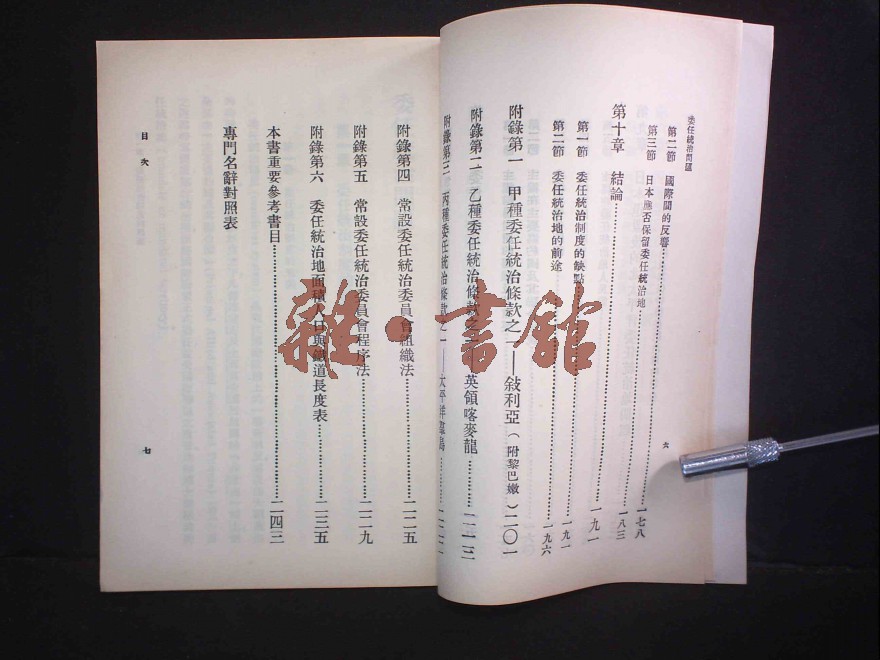 委任統治問題
第二節 國際間的反響………一七八
第三節 日本應否保留委任統治地………一八三
第十章 結論………一九一
第一節 委任統治制度的缺點………一九一
第二節 委任統治地的前途………一九六
附錄第一 甲種委任統治條款之一——敍利亞(附黎巴嫩)二〇一
附錄第二 乙種委任統治條款之一——英領喀麥龍………二一三
附錄第三 丙種委任統治條款之一——太平洋羣島………二二二
六
附錄第四 常設委任統治委員會組織法………二二五
附錄第五 常設委任統治委員會程序法………二二九
附錄第六 委任統治地面積人口與鐵道長度表………二三五
本書重要參考書目………二四三
專門名辭對照表
目次
七
雜·書館